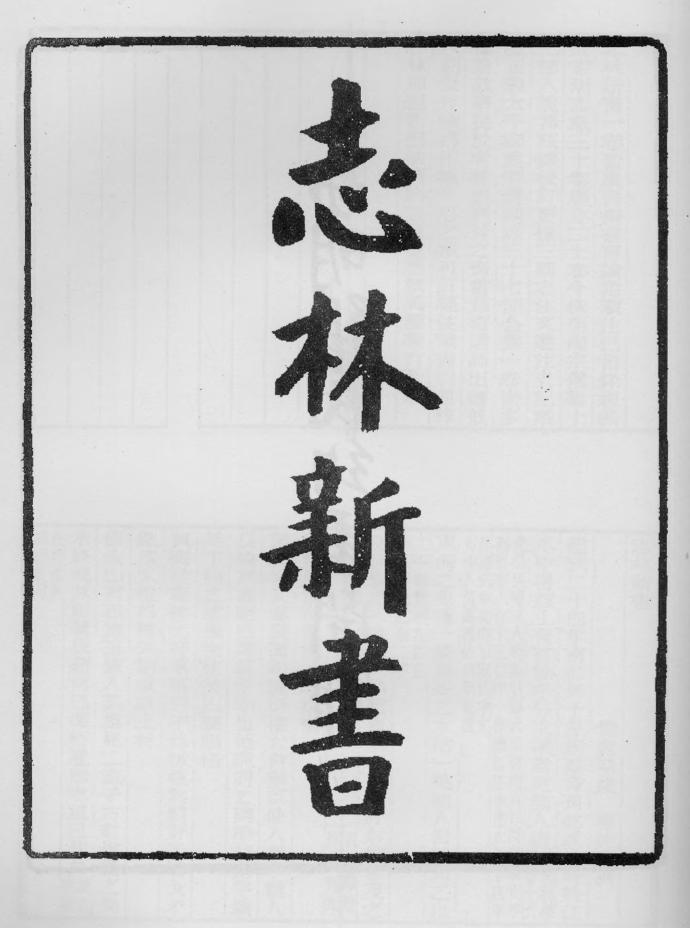 志林新書